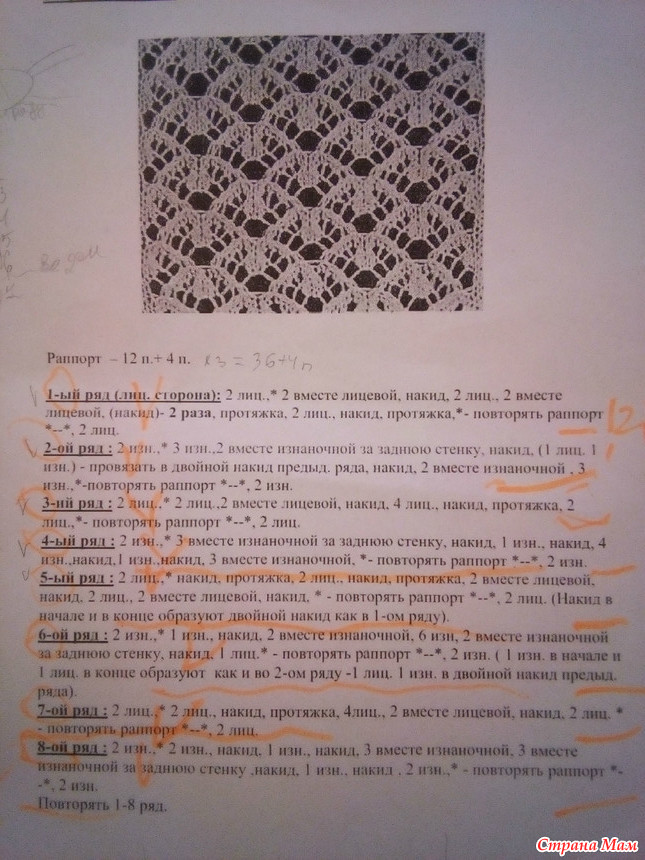 Раппорт – 12 п.+ 4 п. х 3 = 36+4п
1-ый ряд (лиц. сторона): 2 лиц.,* 2 вместе лицевой, накид, 2 лиц., 2 вместе
лицевой, (накид)- 2 раза, протяжка, 2 лиц., накид, протяжка,*- повторять раппорт
*--*, 2 лиц.
2-ой ряд : 2 изн.,* 3 изн.,2 вместе изнаночной за заднюю стенку, накид, (1 лиц. 1
изн.) - провязать в двойной накид предыд. ряда, накид, 2 вместе изнаночной , 3
изн.,*-повторять раппорт *--*, 2 изн.
3-ний ряд : 2 лиц.,* 2 лиц.,2 вместе лицевой, накид, 4 лиц., накид, протяжка, 2
лиц.,*- повторять раппорт *--*, 2 лиц.
4-ый ряд : 2 изн.,* 3 вместе изнаночной за заднюю стенку, накид, 1 изн., накид, 4
изн.,накид,1 изн.,накид, 3 вместе изнаночной, *- повторять раппорт *--*, 2 изн.
5-ый ряд : 2 лиц.,* накид, протяжка, 2 лиц., накид, протяжка, 2 вместе лицевой,
накид, 2 лиц., 2 вместе лицевой, накид, * - повторять раппорт *--*, 2 лиц. (Накид в
начале и в конце образуют двойной накид как в 1-ом ряду).
6-ой ряд : 2 изн.,* 1 изн., накид, 2 вместе изнаночной, 6 изн, 2 вместе изнаночной
за заднюю стенку, накид, 1 лиц.* - повторять раппорт *--*, 2 изн. ( 1 изн. в начале и
1 лиц. в конце образуют как и во 2-ом ряду -1 лиц. 1 изн. в двойной накид предыд.
ряда).
7-ой ряд : 2 лиц.,* 2 лиц., накид, протяжка, 4лиц., 2 вместе лицевой, накид, 2 лиц. *
- повторять раппорт *--*, 2 лиц.
8-ой ряд : 2 изн.,* 2 изн., накид, 1 изн., накид, 3 вместе изнаночной, 3 вместе
изнаночной за заднюю стенку ,накид, 1 изн., накид , 2 изн.,* - повторять раппорт *-
-*, 2 изн.
Повторять 1-8 ряд.
12
Страна Мам